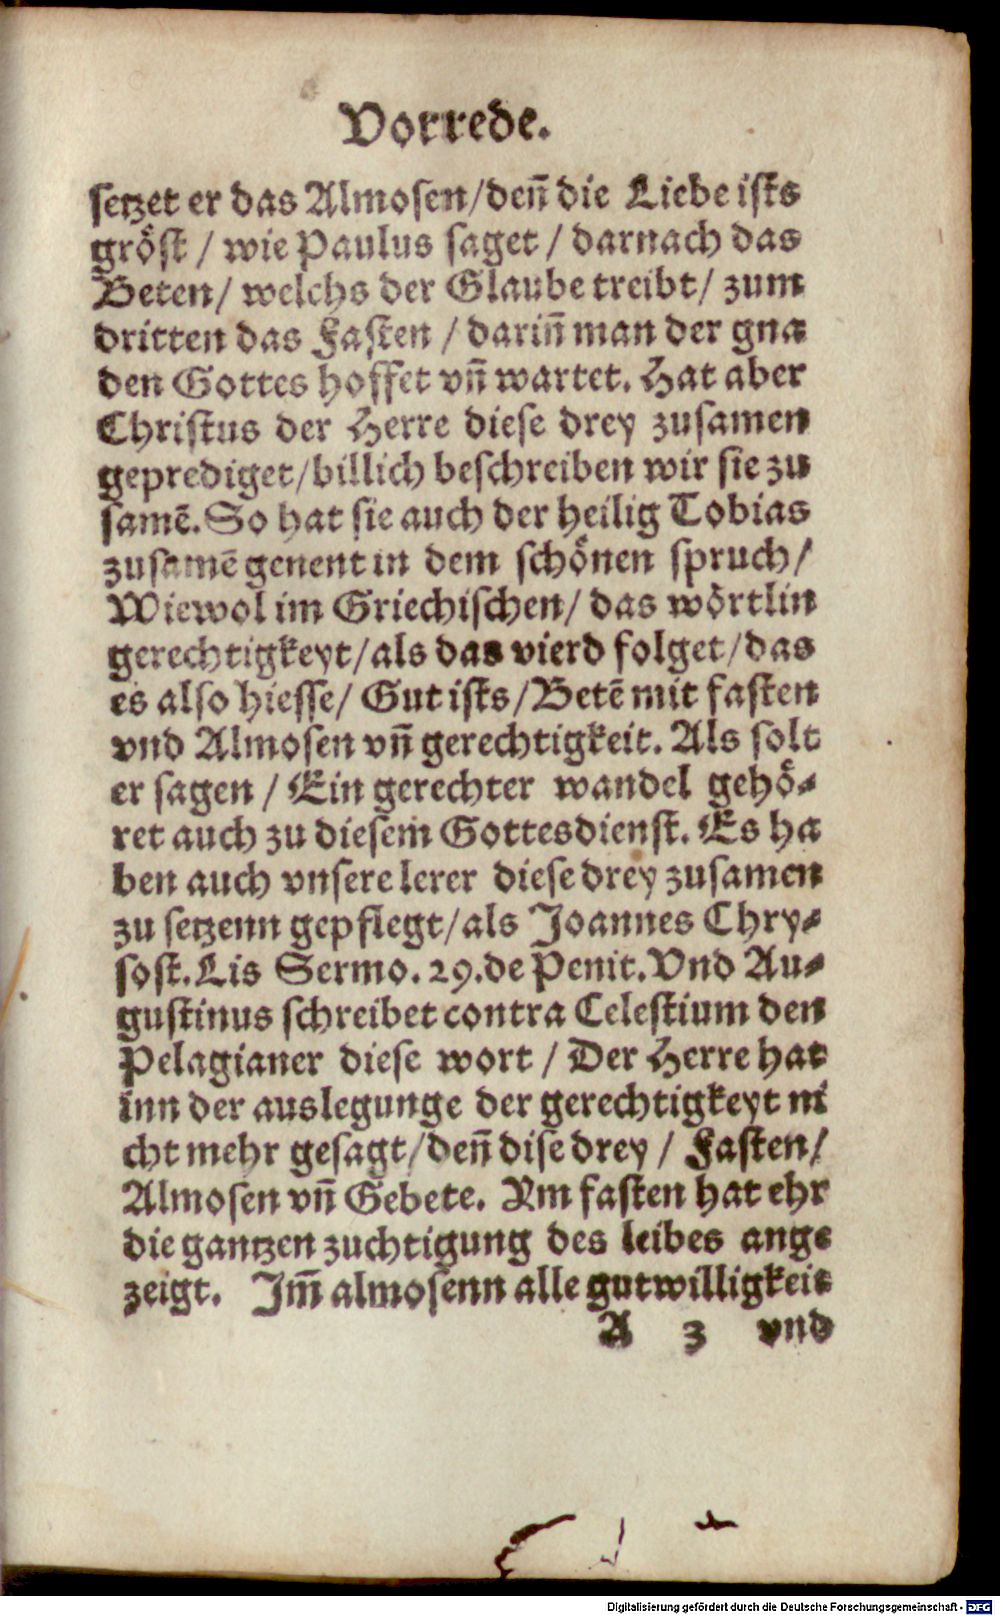 Vorrede.
setzet er das Almosen/deñ die Liebe ists
gröst / wie Paulus saget / darnach das
Beten/ welchs der Glaube treibt/ zum
dritten das Fasten / dariñ man der gna
den Gottes hoffet vñ wartet. Hat aber
Christus der Herre diese drey zusamen
geprediget/billich beschreiben wir sie zu
samē. So hat sie auch der heilig Tobias
zusamē genent in dem schönen spruch/
Wiewol im Griechischen/ das wörtlin
gerechtigkeyt/als das vierd folget/das
es also hiesse/ Gut ists/Betē mit fasten
vnd Almosen vñ gerechtigkeit. Als solt
er sagen / Ein gerechter wandel gehö-
ret auch zu diesem Gottesdienst. Es ha
ben auch vnsere lerer diese drey zusamen
zu setzenn gepflegt/als Joannes Chry-
sost. Lis Sermo. 29. de Penit. Vnd Au-
gustinus schreibet contra Celestium den
Pelagianer diese wort / Der Herre hat
inn der auslegunge der gerechtigkeyt ni
cht mehr gesagt/deñ dise drey / Fasten/
Almosen vñ Gebete. Am fasten hat ehr
die gantzen zuchtigung des leibes ange
zeigt. Jm̃ almosenn alle gutwilligkeit
A 3 vnd
Digitalisierung gefördert durch die Deutsche Forschungsgemeinschaft - DFG